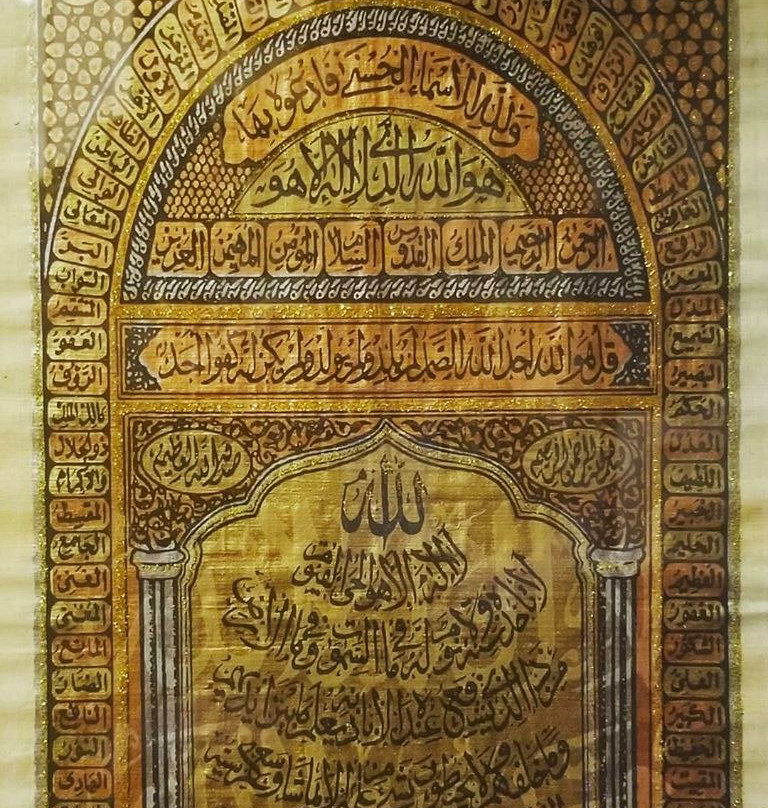 ولله الأسماء الحسنى فادعوه بها
هو الله الذي لا إله إلا هو
الرحمن الرحيم الملك القدوس السلام المؤمن المهيمن العزيز
قل هو الله أحد الله الصمد لم يلد ولم يولد ولم يكن له كفوا أحد
بسم الله الرحمن الرحيم
صدق الله العظيم
الله
لا إله إلا هو الحي القيوم
لا تأخذه سنة ولا نوم له ما في السموات وما في الأرض
من ذا الذي يشفع عنده إلا بإذنه يعلم ما بين أيديهم
وما خلفهم ولا يحيطون بشيء من علمه إلا بما شاء وسع كرسيه
الرافع
المعز
المذل
السميع
البصير
الحكم
العدل
اللطيف
الخبير
الحليم
العظيم
الغفور
الشكور
العلي
الكبير
الحفيظ
المقيت
المتعالي
البر
التواب
المنتقم
العفو
الرؤف
مالك الملك
ذو الجلال
والإكرام
المقسط
الجامع
الغني
المغني
المانع
الضار
النافع
النور
الهادي